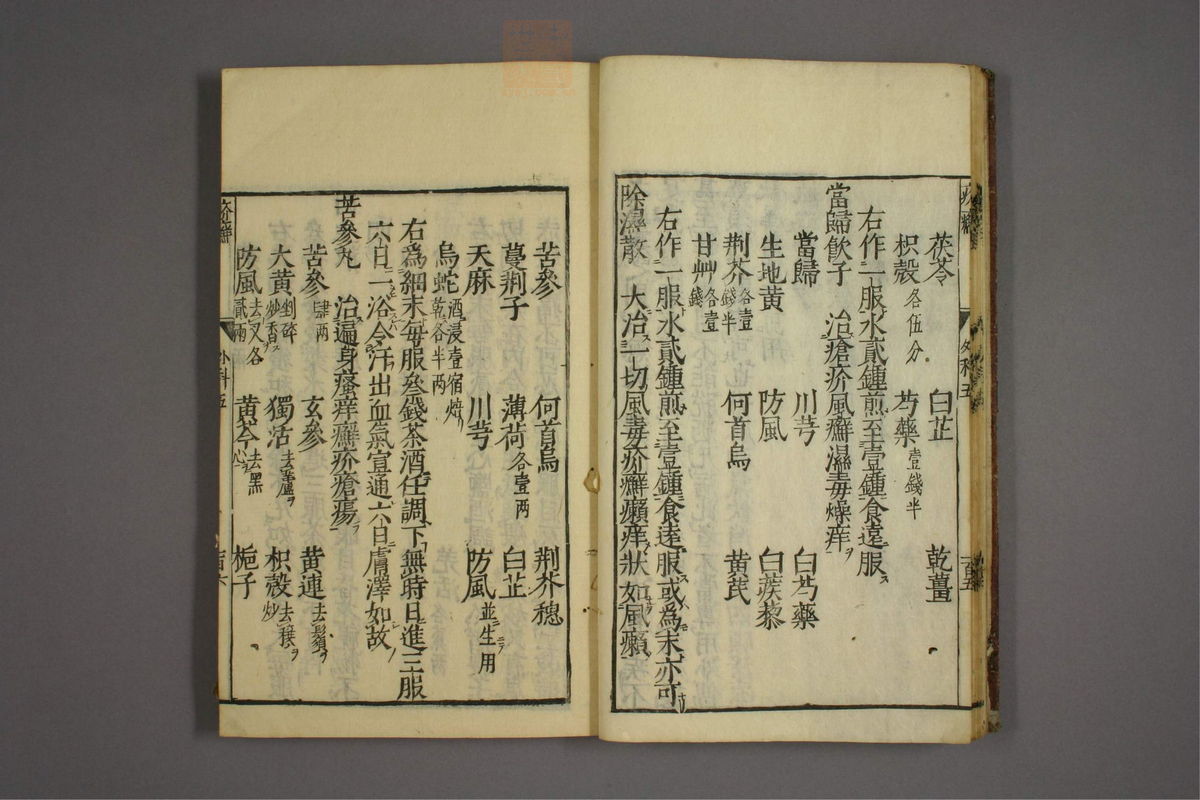 茯苓 白芷 乾薑
枳殼各伍分 芍藥壹錢半
右作一服水貳鍾煎至壹鍾食遠服
當歸飲子 治瘡疥風癬濕毒燥痒ヲ
當歸 川芎 白芍藥
生地黄 防風 白蒺藜
荆芥各壹錢半 何首烏 黄芪
甘艸各壹錢
右作一服水貳鍾煎至壹鍾食遠服或為末亦可
除濕散 大治一切風毒疥癬癩痒狀如風癩
苦參 何首烏 荆芥穗
蔓荆子 薄荷各壹两 白芷
天麻 川芎 防風並生用
烏蛇酒浸壹宿焙乾各半两
右為細末每服叁錢茶酒任調下無時日進三服
六日一浴令汗出血氣宣通六日膚澤如故
苦參丸 治遍身瘙痒癬疥瘡瘍ヲ
苦參肆两 玄參 黄連去鬚ヲ
大黄剉碎炒香ス 獨活去蘆ヲ 枳殼去穰ヲ炒
防風去叉各貳兩 黄芩去黑心ヲ 梔子
外科五
百五
外科五
百六